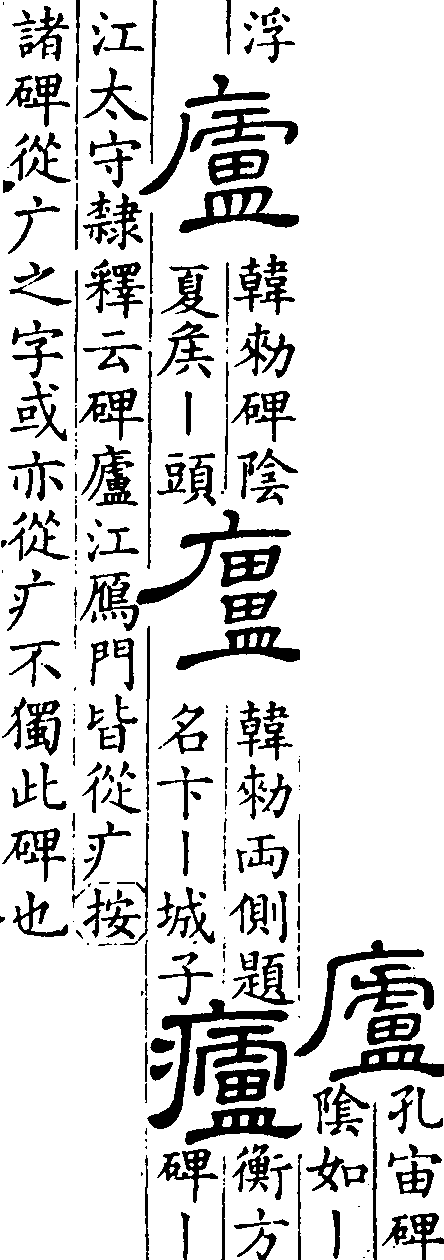 廬
孔宙碑
陰如丨
浮
廬
韓勑碑陰
夏矦丨頭
韓勑両側題
名卞丨城子
衡方
碑丨
江太守隸釋云碑廬江鴈門皆從疒按
諸碑從广之字或亦從疒不獨此碑也